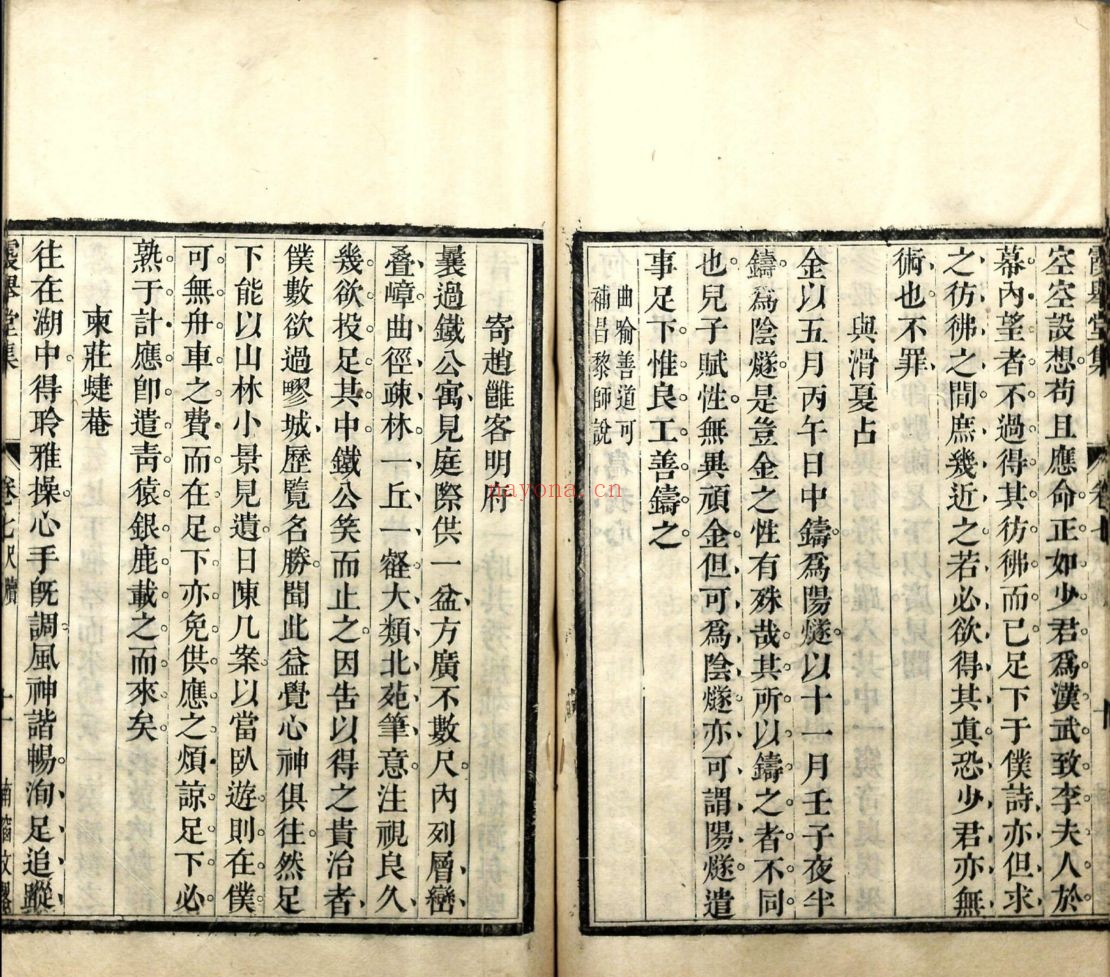 霞舉堂集
卷七
十
空空設想苟且應命正如少君爲漢武致李夫人於
幕內望者不過得其彷彿而已足下于僕詩亦但求
之彷彿之間庶幾近之若必欲得其眞恐少君亦無
術也不罪
與滑夏占
金以五月丙午日中鑄爲陽燧以十一月壬子夜半
鑄爲陰燧是豈金之性有殊哉其所以鑄之者不同
也兒子賦性無異頑金但可爲陰燧亦可謂陽燧遣
事足下惟良工善鑄之
曲喻善道可
補昌黎師說
寄趙雝客明府
曩過鐵公寓見庭際供一盆方廣不數尺內列層巒
叠嶂曲徑疎林一丘一壑大類北苑筆意注視良久
幾欲投足其中鐵公笑而止之因告以得之貴治者
僕數欲過疁城歷覽名勝聞此益覺心神俱往然足
下能以山林小景見遺日陳几案以當臥遊則在僕
可無舟車之費而在足下亦免供應之煩諒足下必
熟于計應卽遣靑猿銀鹿載之而來矣
柬莊蜨菴
往在湖中得聆雅操心手旣調風神諧暢洵足追蹤
霞舉堂集
卷七尺牘
十一
nayona.cn